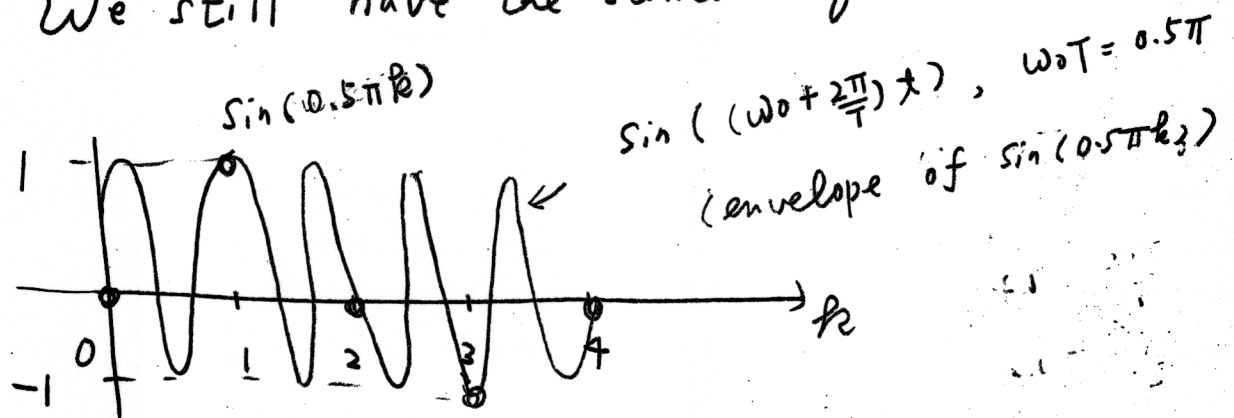 We still have the same
sin(0.5πk)
sin((ω0 + 2π/T)t), ω0T = 0.5π
(envelope of sin(0.5πk))
1
0 1 2 3 4 k
-1